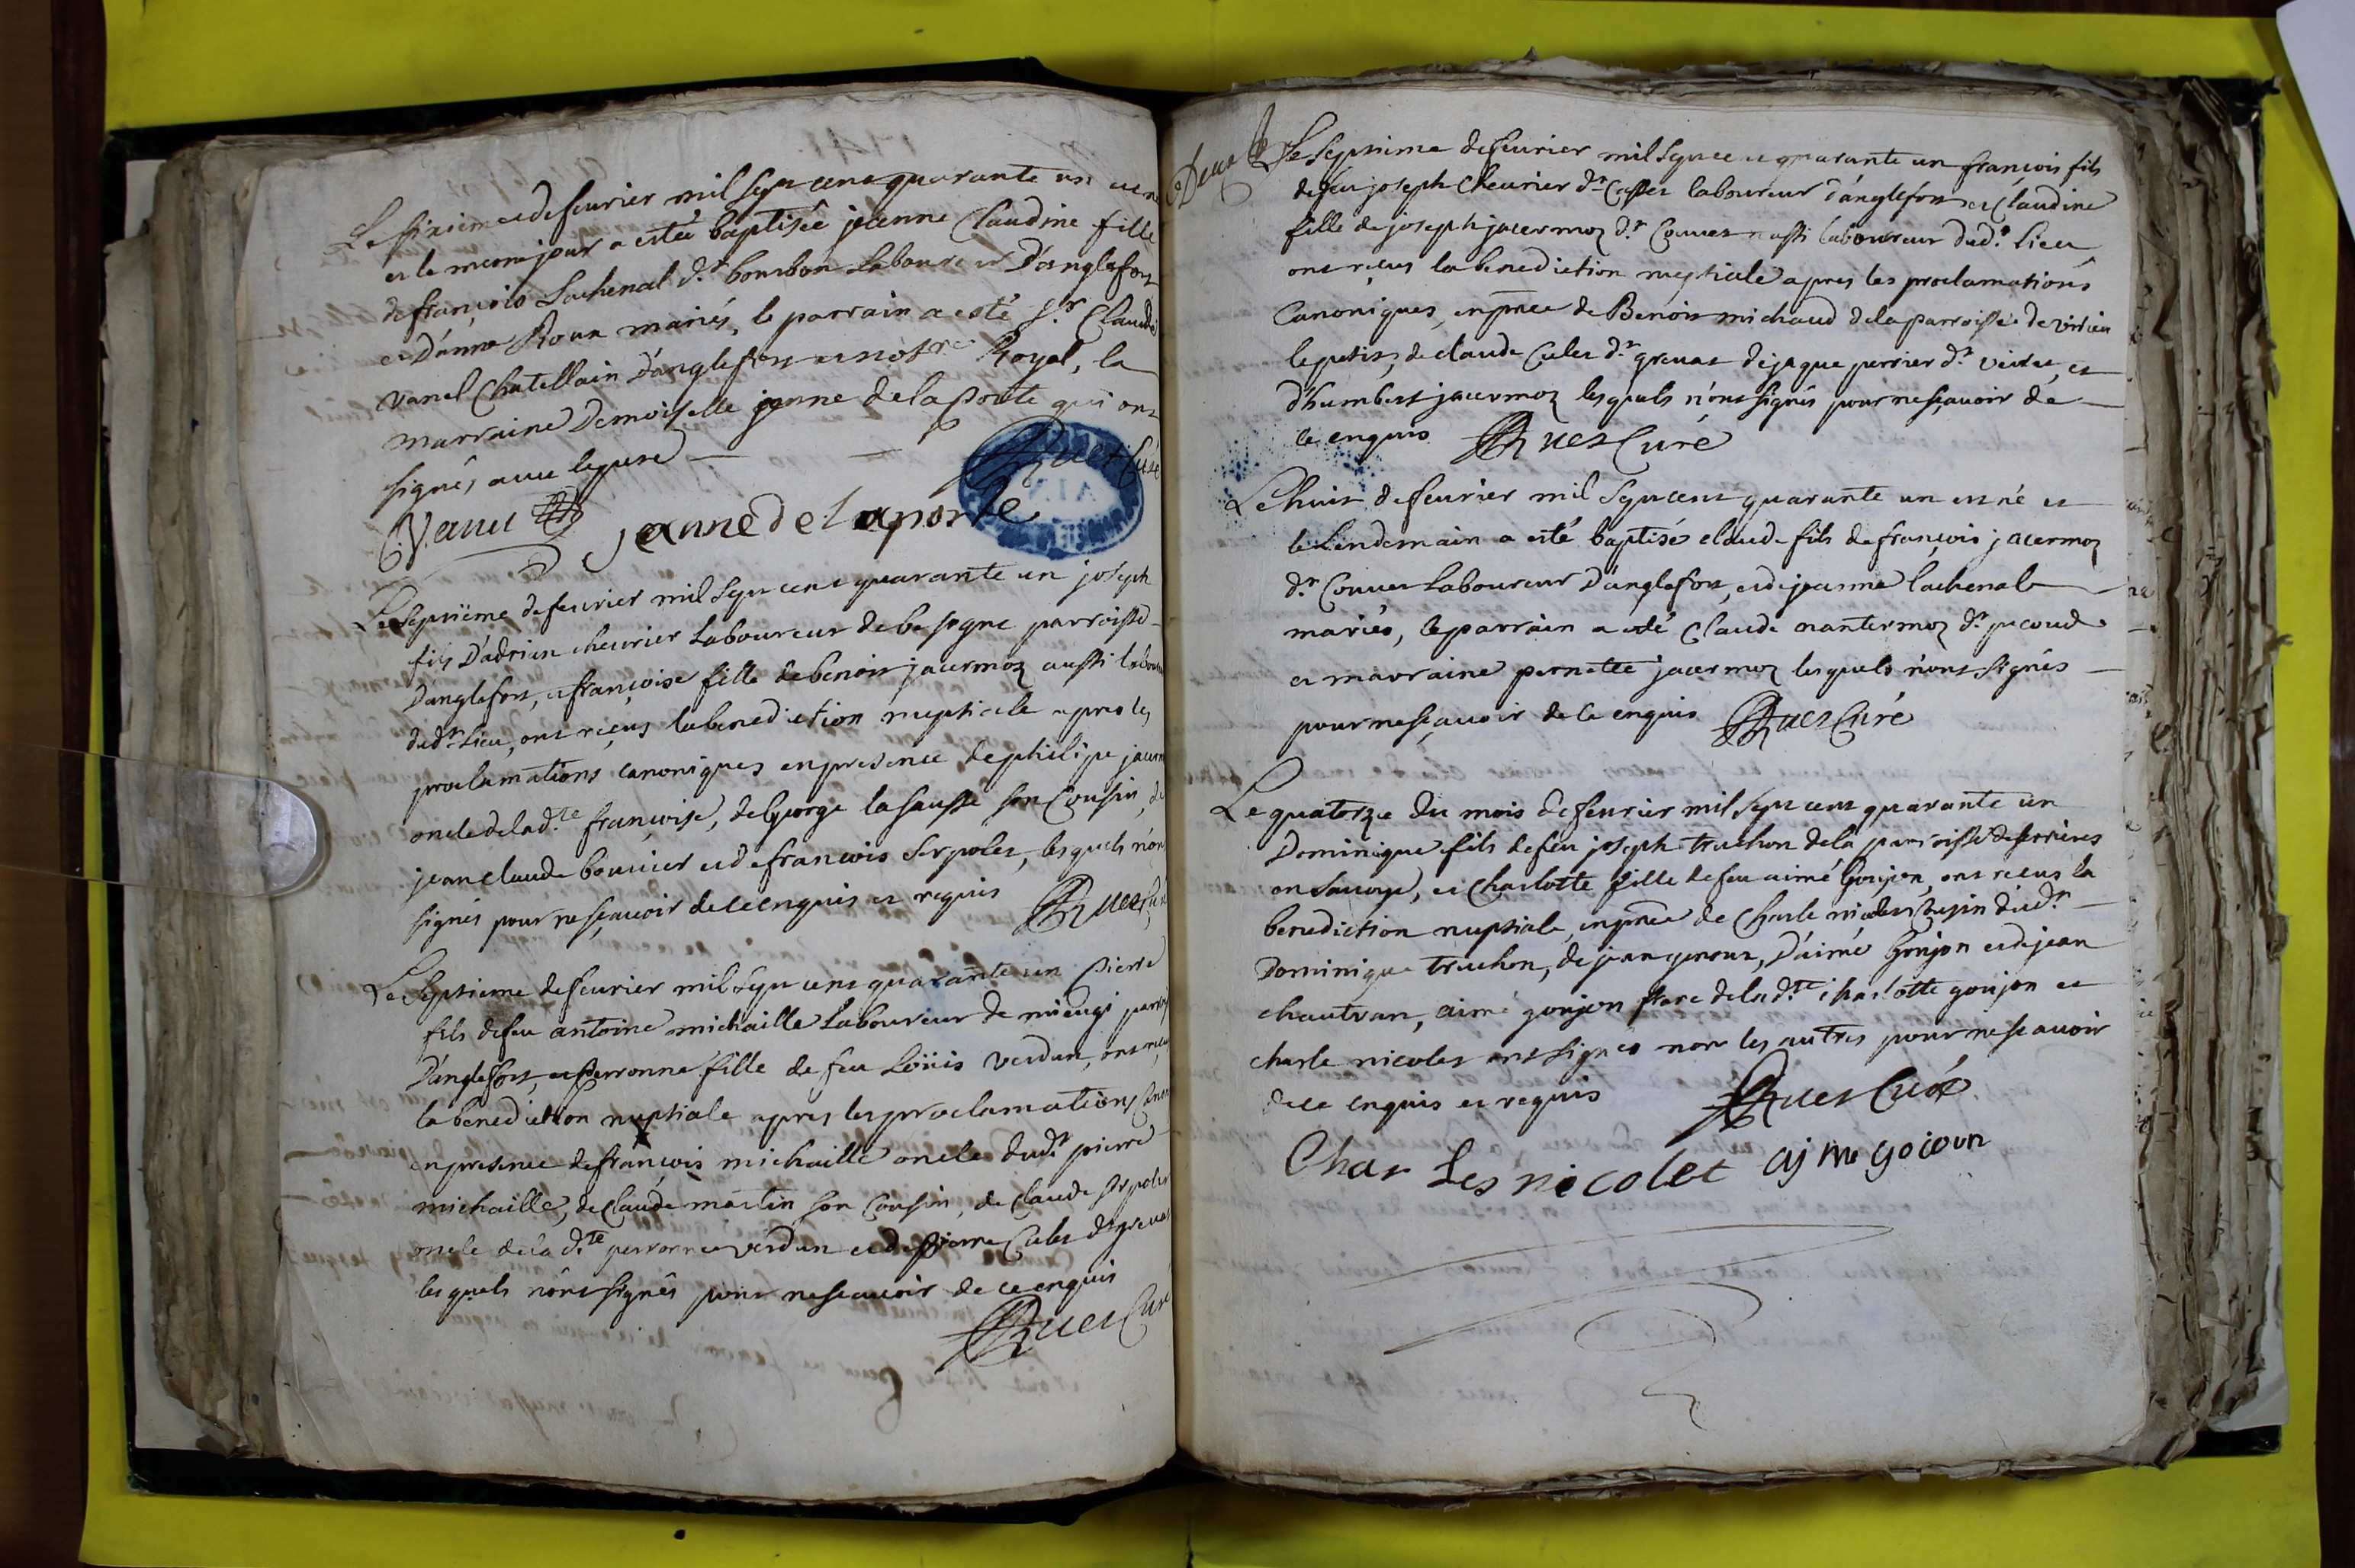 Le sixieme de feurier mil sept cent quarante un
et le meme jour a estée baptisée jeanne Claudine fille
de françois Lachenal d.t bourbon Laboureur D'anglefort
et D'anne Roux mariés, le parrain a esté S.r Claude
vanel Chatellain D'anglefort et not.re Royal, la
marraine Demoiselle jeanne de la porte qui ont
signés avec le curé
Ruet Curé
C. Vanel jeanne de laporte
Le septiéme de feurier mil sept cent quarante un joseph
fils D'adrien cheurier Laboureur de besogne parroisse
D'anglefort, et françoise fille de benoit jacermoz aussi
dud.t Lieu, ont reçus la benediction nuptiale apres les
proclamations canoniques en presence de philipe
oncle de lad.te françoise, de George lasausse son Cousin, de
jean claude bouuier et de francois serpolet, lesquels n'ont
signés pour ne sçauoir de ce enquis et requis Ruet
Le septieme de feurier mil sept cent quarante un pierre
fils de feu antoine michaille Laboureur de mieugi
D'anglefort, et perronne fille de feu Loüis verdun, ont
la benediction nuptiale apres les proclamations
en presence de françois michaille oncle dud.t pierre
michaille, de Claude martin son Cousin, de Claude serpolet
oncle de la d.te perronne verdun et de pierre Culet d.t greuat
lesquels n'ont signés pour ne sçauoir de ce enquis
Ruet Curé
Le septieme de feurier mil sept cent quarante un françois fils
de feu joseph Cheurier d.t Casset laboureur d'anglefort et Claudine
fille de joseph jacermoz d.t Couuet aussi laboureur dud.t Lieu
ont reçus la benediction nuptiale apres les proclamations
Canoniques, en pnce de Benoit michaud de la parroisse de virieu
le petit, de claude Culet d.t greuat de jaque perrier d.t et
d'humbert jacermoz lesquels n'ont signés pour ne sçauoir de
ce enquis Ruet Curé
Le huit de feurier mil sept cent quarante un est né et
le Lendemain a esté baptisé claude fils de françois jacermoz
d.t Couuet Laboureur D'anglefort, et de jeanne lachenal
mariés, le parrain a esté Claude nantermoz d.t jucoud
et marraine pernette jacermoz lesquels n'ont signés
pour ne sçauoir de ce enquis Ruet Curé
Le quatorze du mois de feurier mil sept cent quarante un
Dominique fils de feu joseph truchon de la parroisse de serrieres
en Sauoye, et Charlotte fille de feu aimé Goujon, ont reçus la
benediction nuptiale, en pnce de Charle nicolet Cousin dud.t
Dominique truchon, de jean genoux, D'aimé Goujon et de jean
chautran, aimé goujon frere de lad.te charlotte goujon et
charle nicolet ont signés non les autres pour ne sçauoir
de ce enquis et requis Ruet Curé
Char Les nicolet aj me gojoun